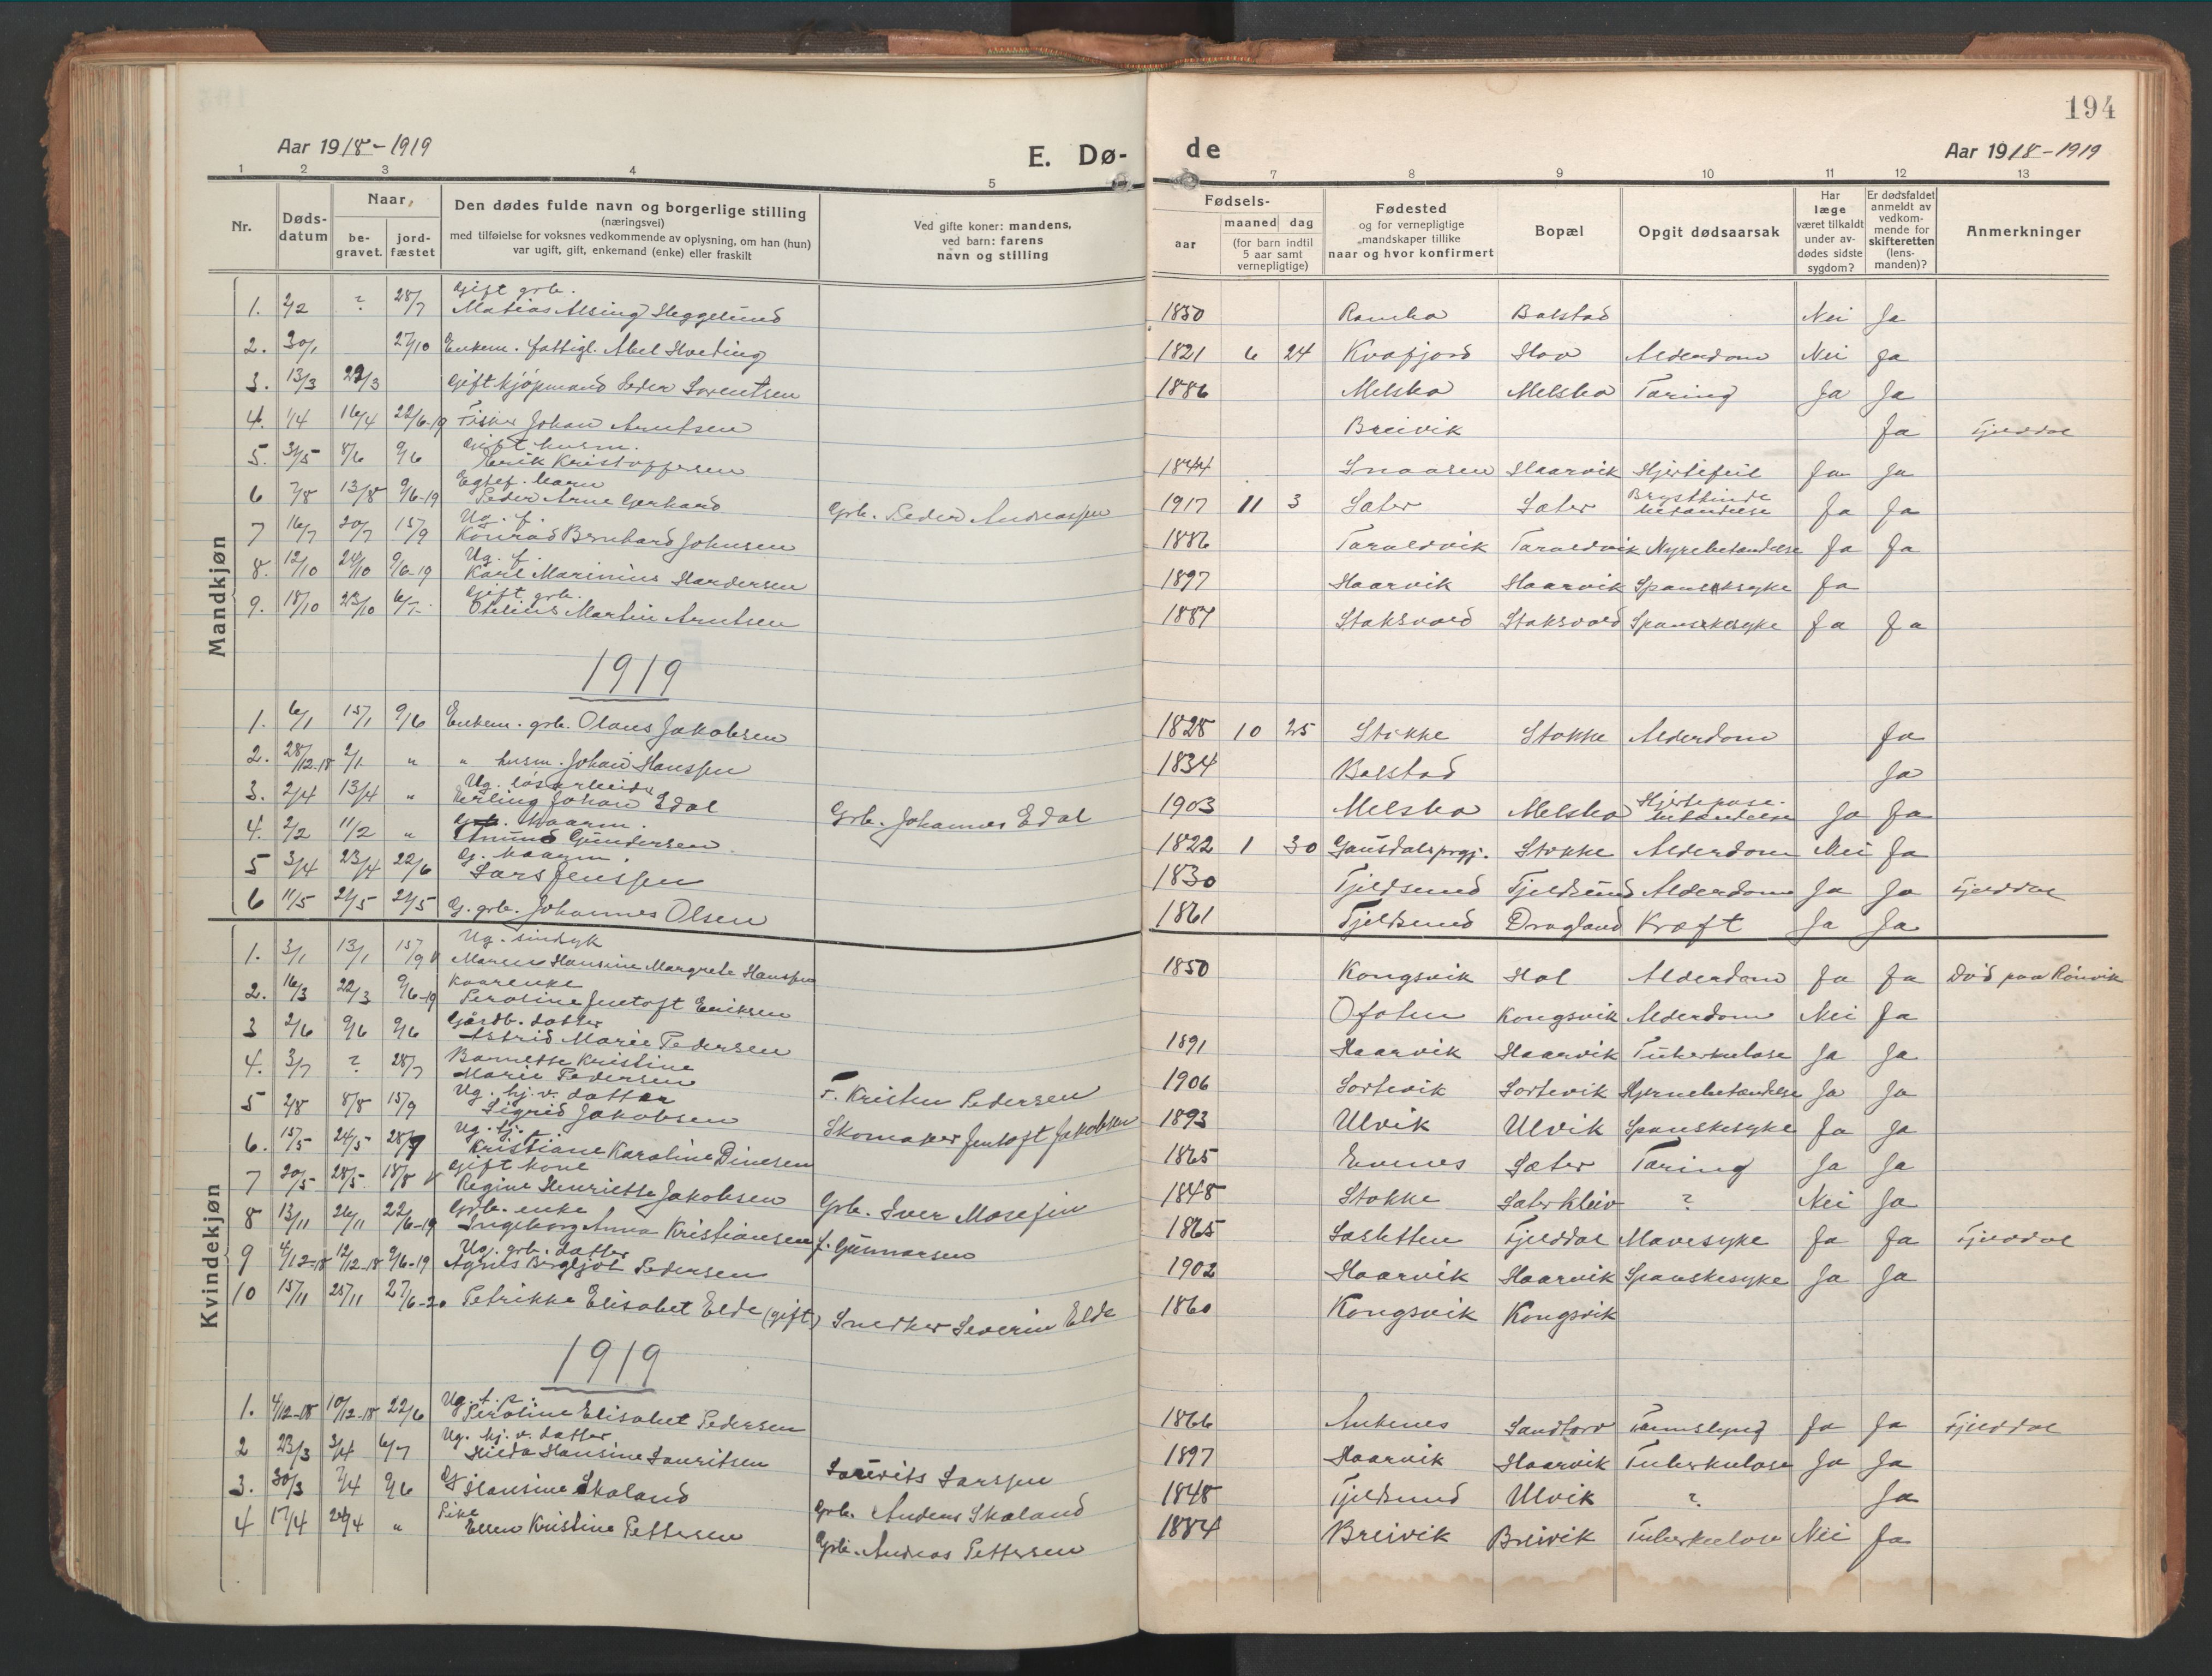 194
Aar 1918-1919
E. Dø- de
Aar 1918-1919
1 2 3 4 5 7 8 9 10 11 12 13
Nr.
Døds-
datum
Naar
be-
gravet.
jord-
fæstet
Den dødes fulde navn og borgerlige stilling
(næringsvei)
med tilføielse for voksnes vedkommende av oplysning, om han (hun)
var ugift, gift, enkemand (enke) eller fraskilt
Ved gifte koner: mandens,
ved barn: farens
navn og stilling
Fødsels-
aar
maaned dag
(for barn indtil
5 aar samt
vernepligtige)
Fødested
og for vernepligtige
mandskaper tillike
naar og hvor konfirmert
Bopæl
Opgit dødsaarsak
Har
læge
været tilkaldt
under av-
dødes sidste
sygdom?
Er dødsfaldet
anmeldt av
vedkom-
mende for
skifteretten
(lens-
manden)?
Anmerkninger
Mandkjøn
Gift grb.
1. 2/2 ? 28/7 Matias Alsing Heggelund 1850 Rambo Bolstad Nei Ja
2. 30/1 27/10 Enkem. fattigl. Abel Hveding 1821 6 24 Kvæfjord Hov Alderdom Nei Ja
3. 13/3 22/3 Gift kjøpmand Peder Lorentsen 1886 Melsbo Melsbo Tæring Ja Ja
4. 1/4 16/4 22/6-19 Fisker Johan Arntsen Breivik Ja Fjelddal
Gift husm.
5. 31/5 8/6 9/6 Henrik Kristoffersen 1844 Snaasen Haarvik Hjertefeil Ja Ja
Egtef. barn
6 7/8 13/8 9/6-19 Peder Arne Gerhard Grb. Peder Andreassen 1917 11 3 Sæter Sæter Brysthinde
betændelse Ja Ja
Ug. f.
7 16/7 20/7 15/9 Konrad Bernhard Johnsen 1886 Taraldvik Taraldvik Nyrebetændelse Ja Ja
Ug. f.
8. 12/10 20/10 9/6-19 Karl Marinius Handersen 1897 Haarvik Haarvik Spanskesyke Ja
Gift grb.
9. 18/10 23/10 6/7 Othelius Martin Arntsen 1887 Staksvold Staksvold Spanskesyke Ja Ja
1919
1. 6/1 15/1 9/6 Enkem. grb. Olaus Jakobsen 1828 10 25 Stokke Stokke Alderdom Ja
2. 28/12-18 2/1 " " husm. Johan Hanssen 1834 Bolstad Ja
Ug. løsarbeider
3. 2/4 13/4 " Erling Johan Edal Grb. Johannes Edal 1903 Melsbo Melsbo Hjertepose-
betændelse Ja Ja
Kaarm.
4. 2/2 11/2 " Amund Gundersen 1822 1 30 Gausdal prgj. Stokke Alderdom Nei Ja
G. kaarm.
5 3/4 23/4 22/6 Lars Jenssen 1830 Tjeldsund Tjeldsund Alderdom Ja Ja Fjelddal
6 11/5 21/5 21/5 G. grb. Johannes Olsen 1861 Tjeldsund Dragland Kræft Ja Ja
Kvindekjøn
Ug. sindsyk
1. 3/1 13/1 15/9 Maren Hansine Margrete Hanssen 1850 Kongsvik Hol Alderdom Ja Ja Død paa Rønvik
Kaarenke
2. 16/3 22/3 9/6-19 Perosine Jentoft Eriksen Ofoten Kongsvik Alderdom Nei Ja
Gårdb. datter
3 2/6 9/6 9/6 Astrid Marie Pedersen 1891 Haarvik Haarvik Tuberkulose Ja Ja
Barnette Kristine
4. 3/7 ? 28/7 Marie Pedersen F. Kristen Pedersen 1906 Sortevik Sortevik Hjernebetændelse Ja Ja
Ug. hj. v. datter
5 2/8 8/8 15/9 Sigrid Jakobsen Skomaker Jentoft Jakobsen 1893 Ulvik Ulvik Spanskesyke Ja Ja
Ug. tj.
6. 15/5 24/5 28/7 Kristiane Karoline Dinesen 1865 Evenes Sæter Tæring Ja Ja
Gift kone
7 20/5 28/5 18/8 Regine Henriette Jakobsen Grb. Iver Mosefin 1848 Stokke Sæterkleiv ? Nei Ja
Grb. enke
8 13/11 26/11 22/6-19 Ingeborg Anna Kristiansen f. Gunnarsen 1865 Sasletten Fjelddal Mavesyke Ja Ja Fjelddal
Ug. grb. datter
9 4/12-18 12/12-18 9/6-19 Agnes Bergljot Pedersen 1902 Haarvik Haarvik Spanskesyke Ja Ja
10 15/11 25/11 27/6-20 Petrikke Elisabet Elde (gift) Snedker Severin Elde 1860 Kongsvik Kongsvik
1919
Ug. f. p.
1. 4/12-18 10/12-18 22/6 Peroline Elisabet Pedersen 1866 Ankenes Sandtorv Tarmslyng Ja Ja Fjelddal
Ug. hj. v. datter
2 23/3 3/4 6/7 Hilda Hansine Lauritsen Laurits Larssen 1897 Haarvik Haarvik Tuberkulose Ja Ja
3. 30/3 7/4 9/6 G Hansine Skoland Grb. Anders Skoland 1848 Tjeldsund Ulvik ? Ja
Pike
4 17/4 24/4 " Ellen Kristine Pettersen Grb. Andreas Pettersen 1884 Breivik Breivik Tuberkulose Nei Ja